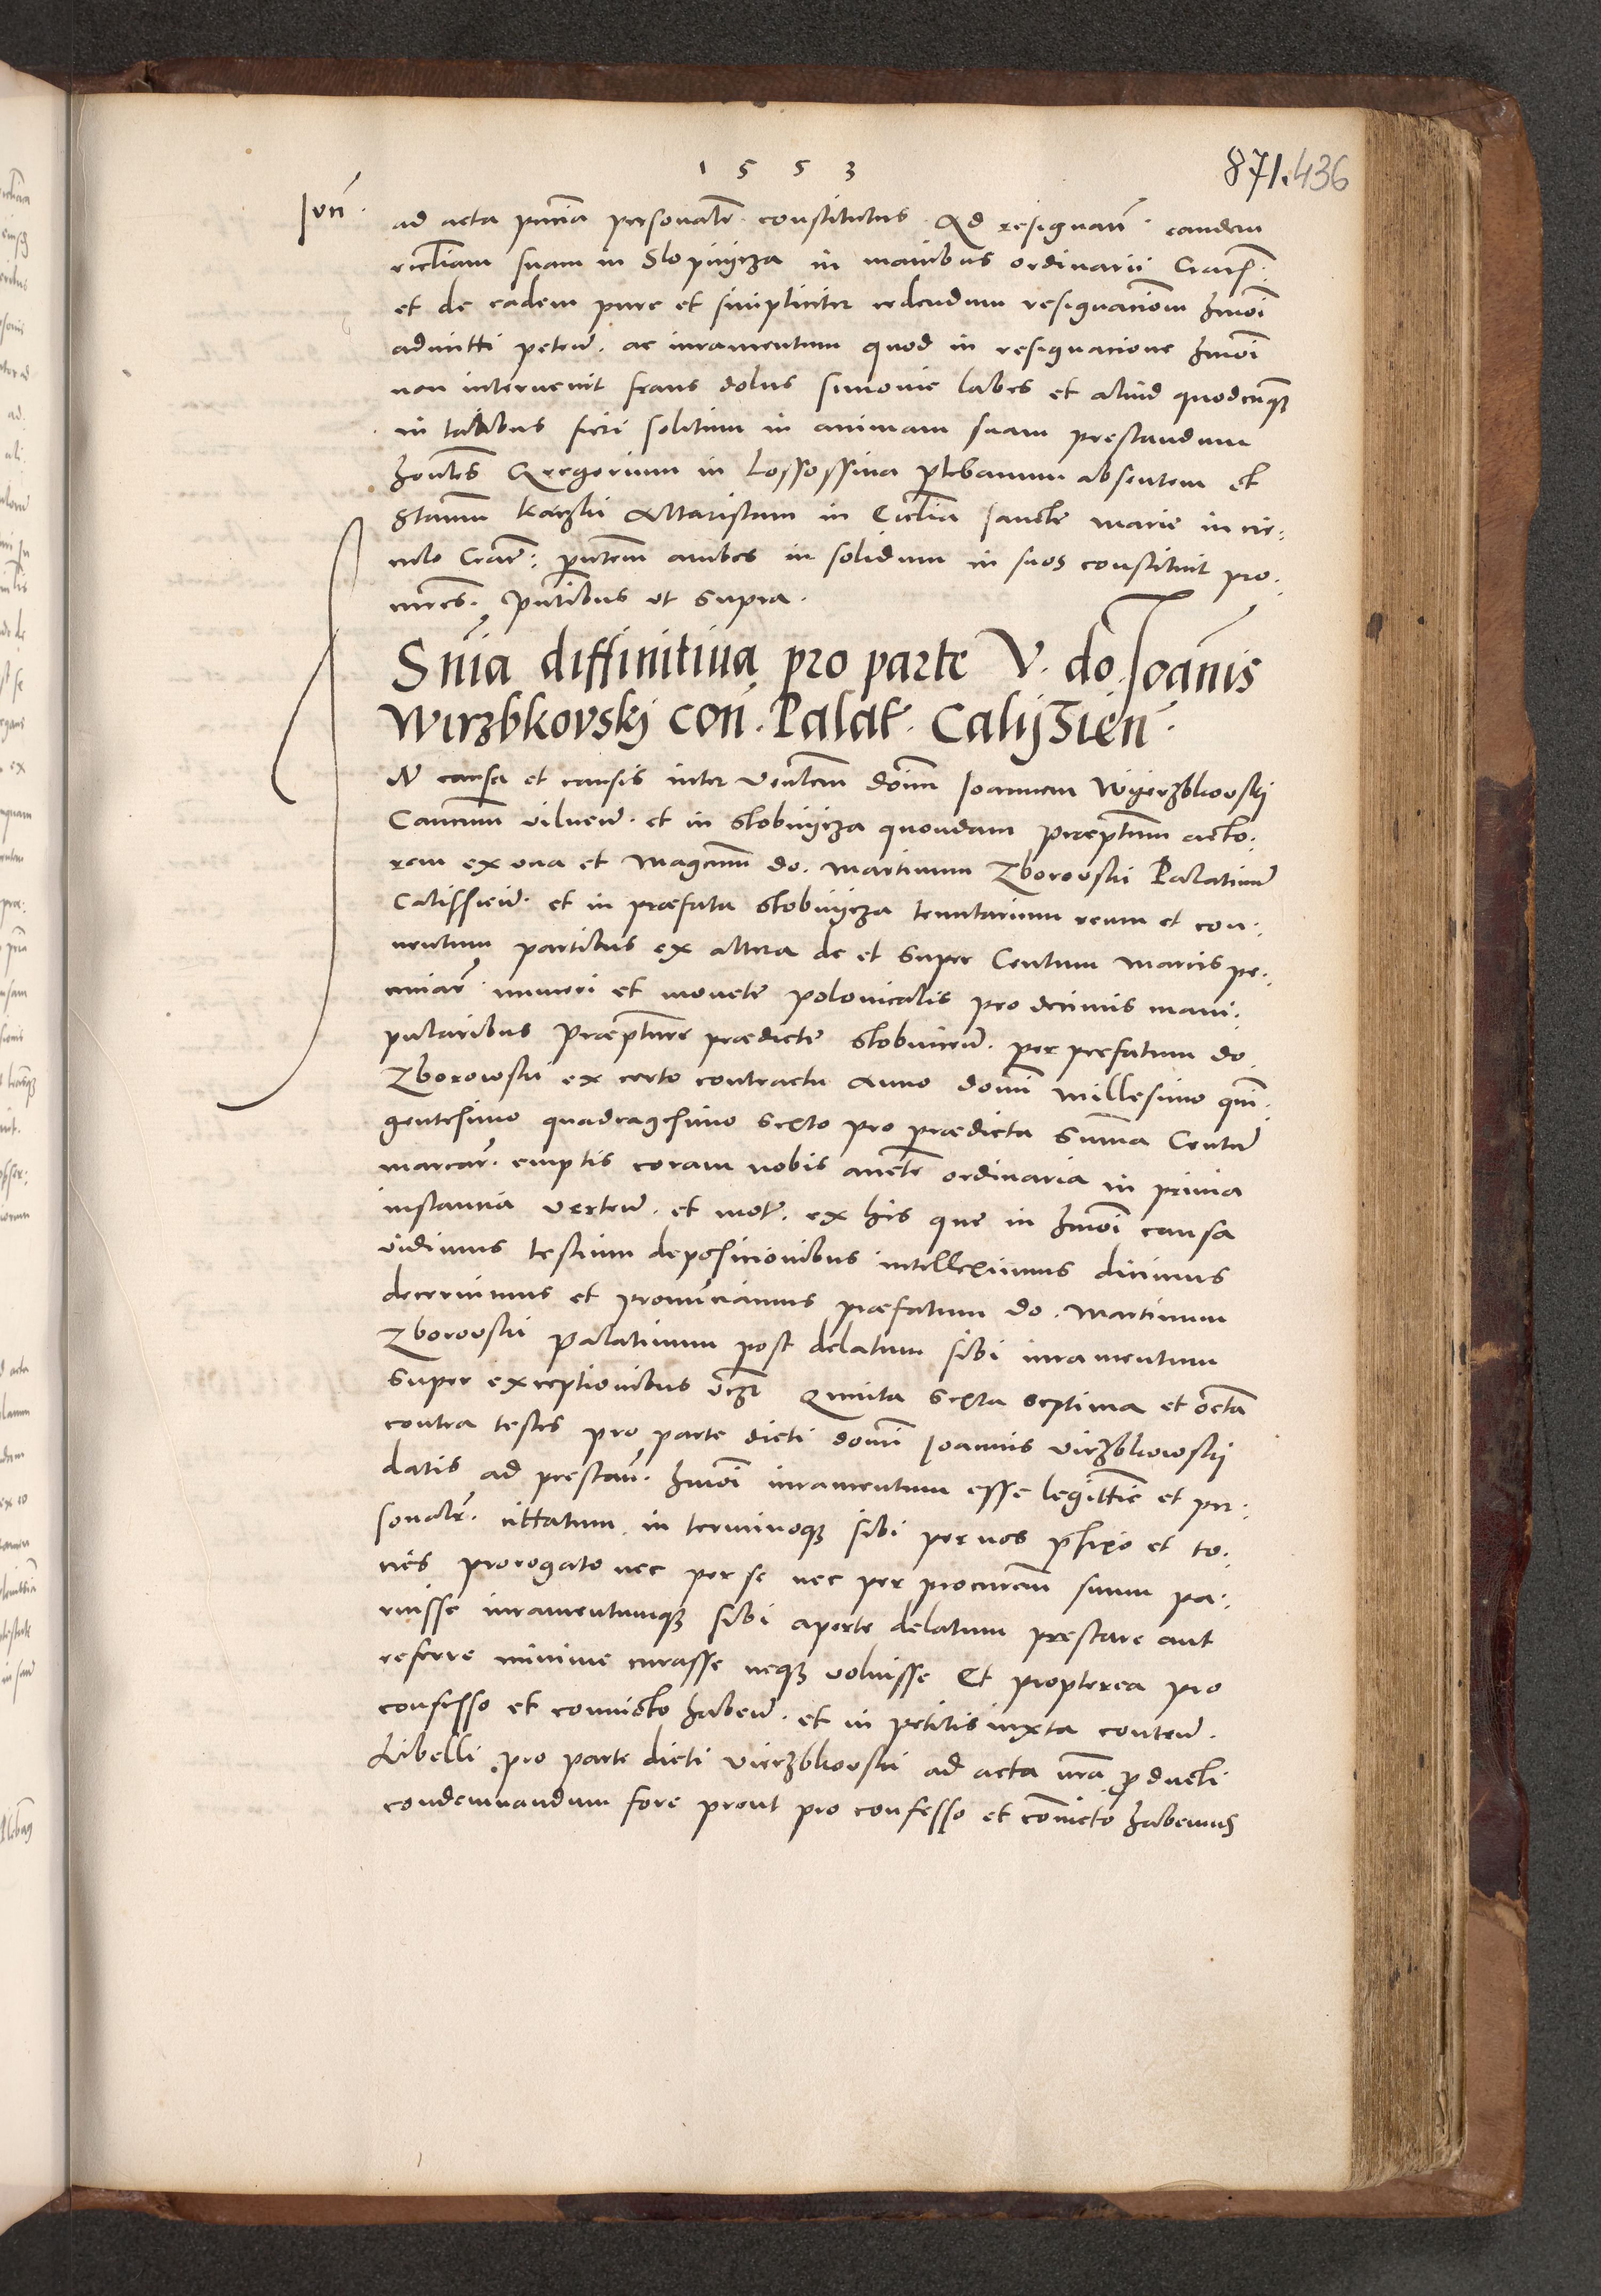 1 5 5 3
871. 436
Jvn̄.
ad acta pn̄cia personalr̄. constitutus. Ad resignan̄. eandem
eccl̄iam suam in Slopnycza in manibus ordinarii Crac̄.
et de eadem pure et simpliciter cedendum resignacionem hmōi
admitti peten̄. ac iuramentum quod in resignacione hmōi
non intervenit fraus dolus simonie labes et aliud quodcunq3
in talibus fieri solitum in animam suam prestandum
Gregorium in Lossossina plebanum absentem et
Altaristam in Eccl̄ia sancte marie in cir:
culo Crac̄: pn̄tem ambos in solidum in suos constituit pro:
cures. pn̄tibus ut supra.
Sn̄ia diffinitiua pro parte V. do. Joan̄is
Wirzbkovski con̄. Palat̄. Calijsien̄.
N causa et causis inter Ven̄lem doīnm Joannem Wyerzbkovskij
Can̄cum vilnen̄. et in stobnycza quondam praeptum acto:
rem ex vna et magcum̄ do. martinum Zborovski Palatinū
Calissien̄. et in praefata stobnycza tenutarium reum et con:
uentum partibus ex altera de et super Centum marcis pe:
cuniar̄. numeri et monete polonicalis pro decimis mani:
pularibus praepture praedicte stobnicen̄. per prefatum do.
Zborowski ex certo contractu Anno domī millesimo quin:
gentesimo quadragesimo sexto pro praedicta summa Centū
marcar̄. emptis coram nobis aucte ordinaria in prima
instancia verten̄. et mot̄. ex his que in hmōi causa
vidimus testium deposicionibus intelleximus dicimus
decernimus et pronūciamus praefatum do. martinum
Zborovski palatinum post delatum sibi iuramentum
super exceptionibus vcz̄ quinta sexta septima et octā
contra testes pro parte dicti domī Joannis virzbkowskij
datis ad prestan̄. hmōi iuramentum esse legittīe et per:
sonalr̄. cittatum. in terminoq3 sibi per nos p̄fixo et to:
ties prorogato nec per se nec per procurem̄ suum pa:
ruisse iuramentumq3 sibi aperte delatum prestare aut
referre minime curasse neq3 voluisse Et propterea pro
confesso et conuicto haben̄. et in petitis iuxta conten̄.
Libelli pro parte dicti vierzbkovski ad acta nr̄a producti
condemnandum fore prout pro confesso et cōuicto habemus